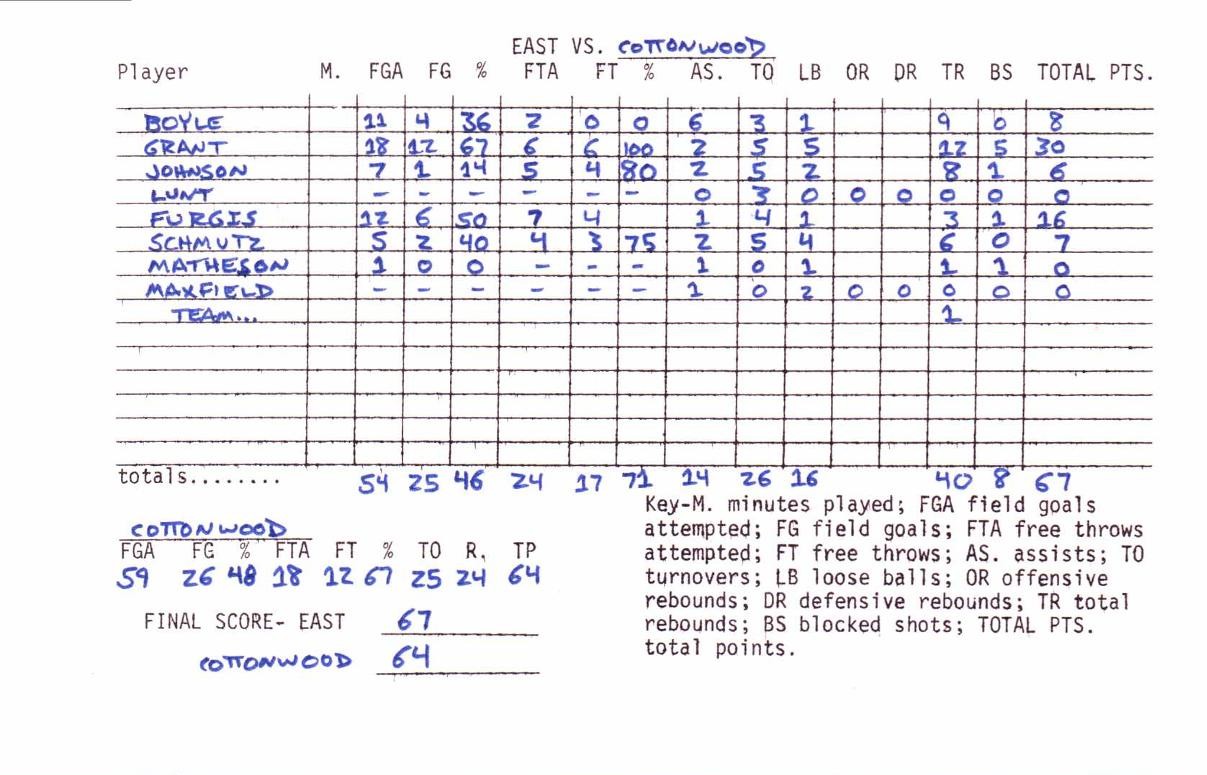 EAST VS. COTTONWOOD
Player M. FGA FG % FTA FT % AS. TO LB OR DR TR BS TOTAL PTS.
BOYLE 11 4 36 2 0 0 6 3 1 9 0 8
GRANT 18 12 67 6 6 100 2 5 5 12 5 30
JOHNSON 7 1 14 5 4 80 2 5 2 8 1 6
LUNT - - - - - - 0 3 0 0 0 0 0 0
FURGIS 12 6 50 7 4 1 4 1 3 1 16
SCHMUTZ 5 2 40 4 3 75 2 5 4 6 0 7
MATHESON 1 0 0 - - - 1 0 1 1 1 0
MAXFIELD - - - - - - 1 0 2 0 0 0 0 0
TEAM... 1
totals........ 54 25 46 24 17 71 14 26 16 40 8 67
Key-M. minutes played; FGA field goals
attempted; FG field goals; FTA free throws
attempted; FT free throws; AS. assists; TO
turnovers; LB loose balls; OR offensive
rebounds; DR defensive rebounds; TR total
rebounds; BS blocked shots; TOTAL PTS.
total points.
COTTONWOOD
FGA FG % FTA FT % TO R. TP
59 26 48 18 12 67 25 24 64
FINAL SCORE- EAST 67
COTTONWOOD 64